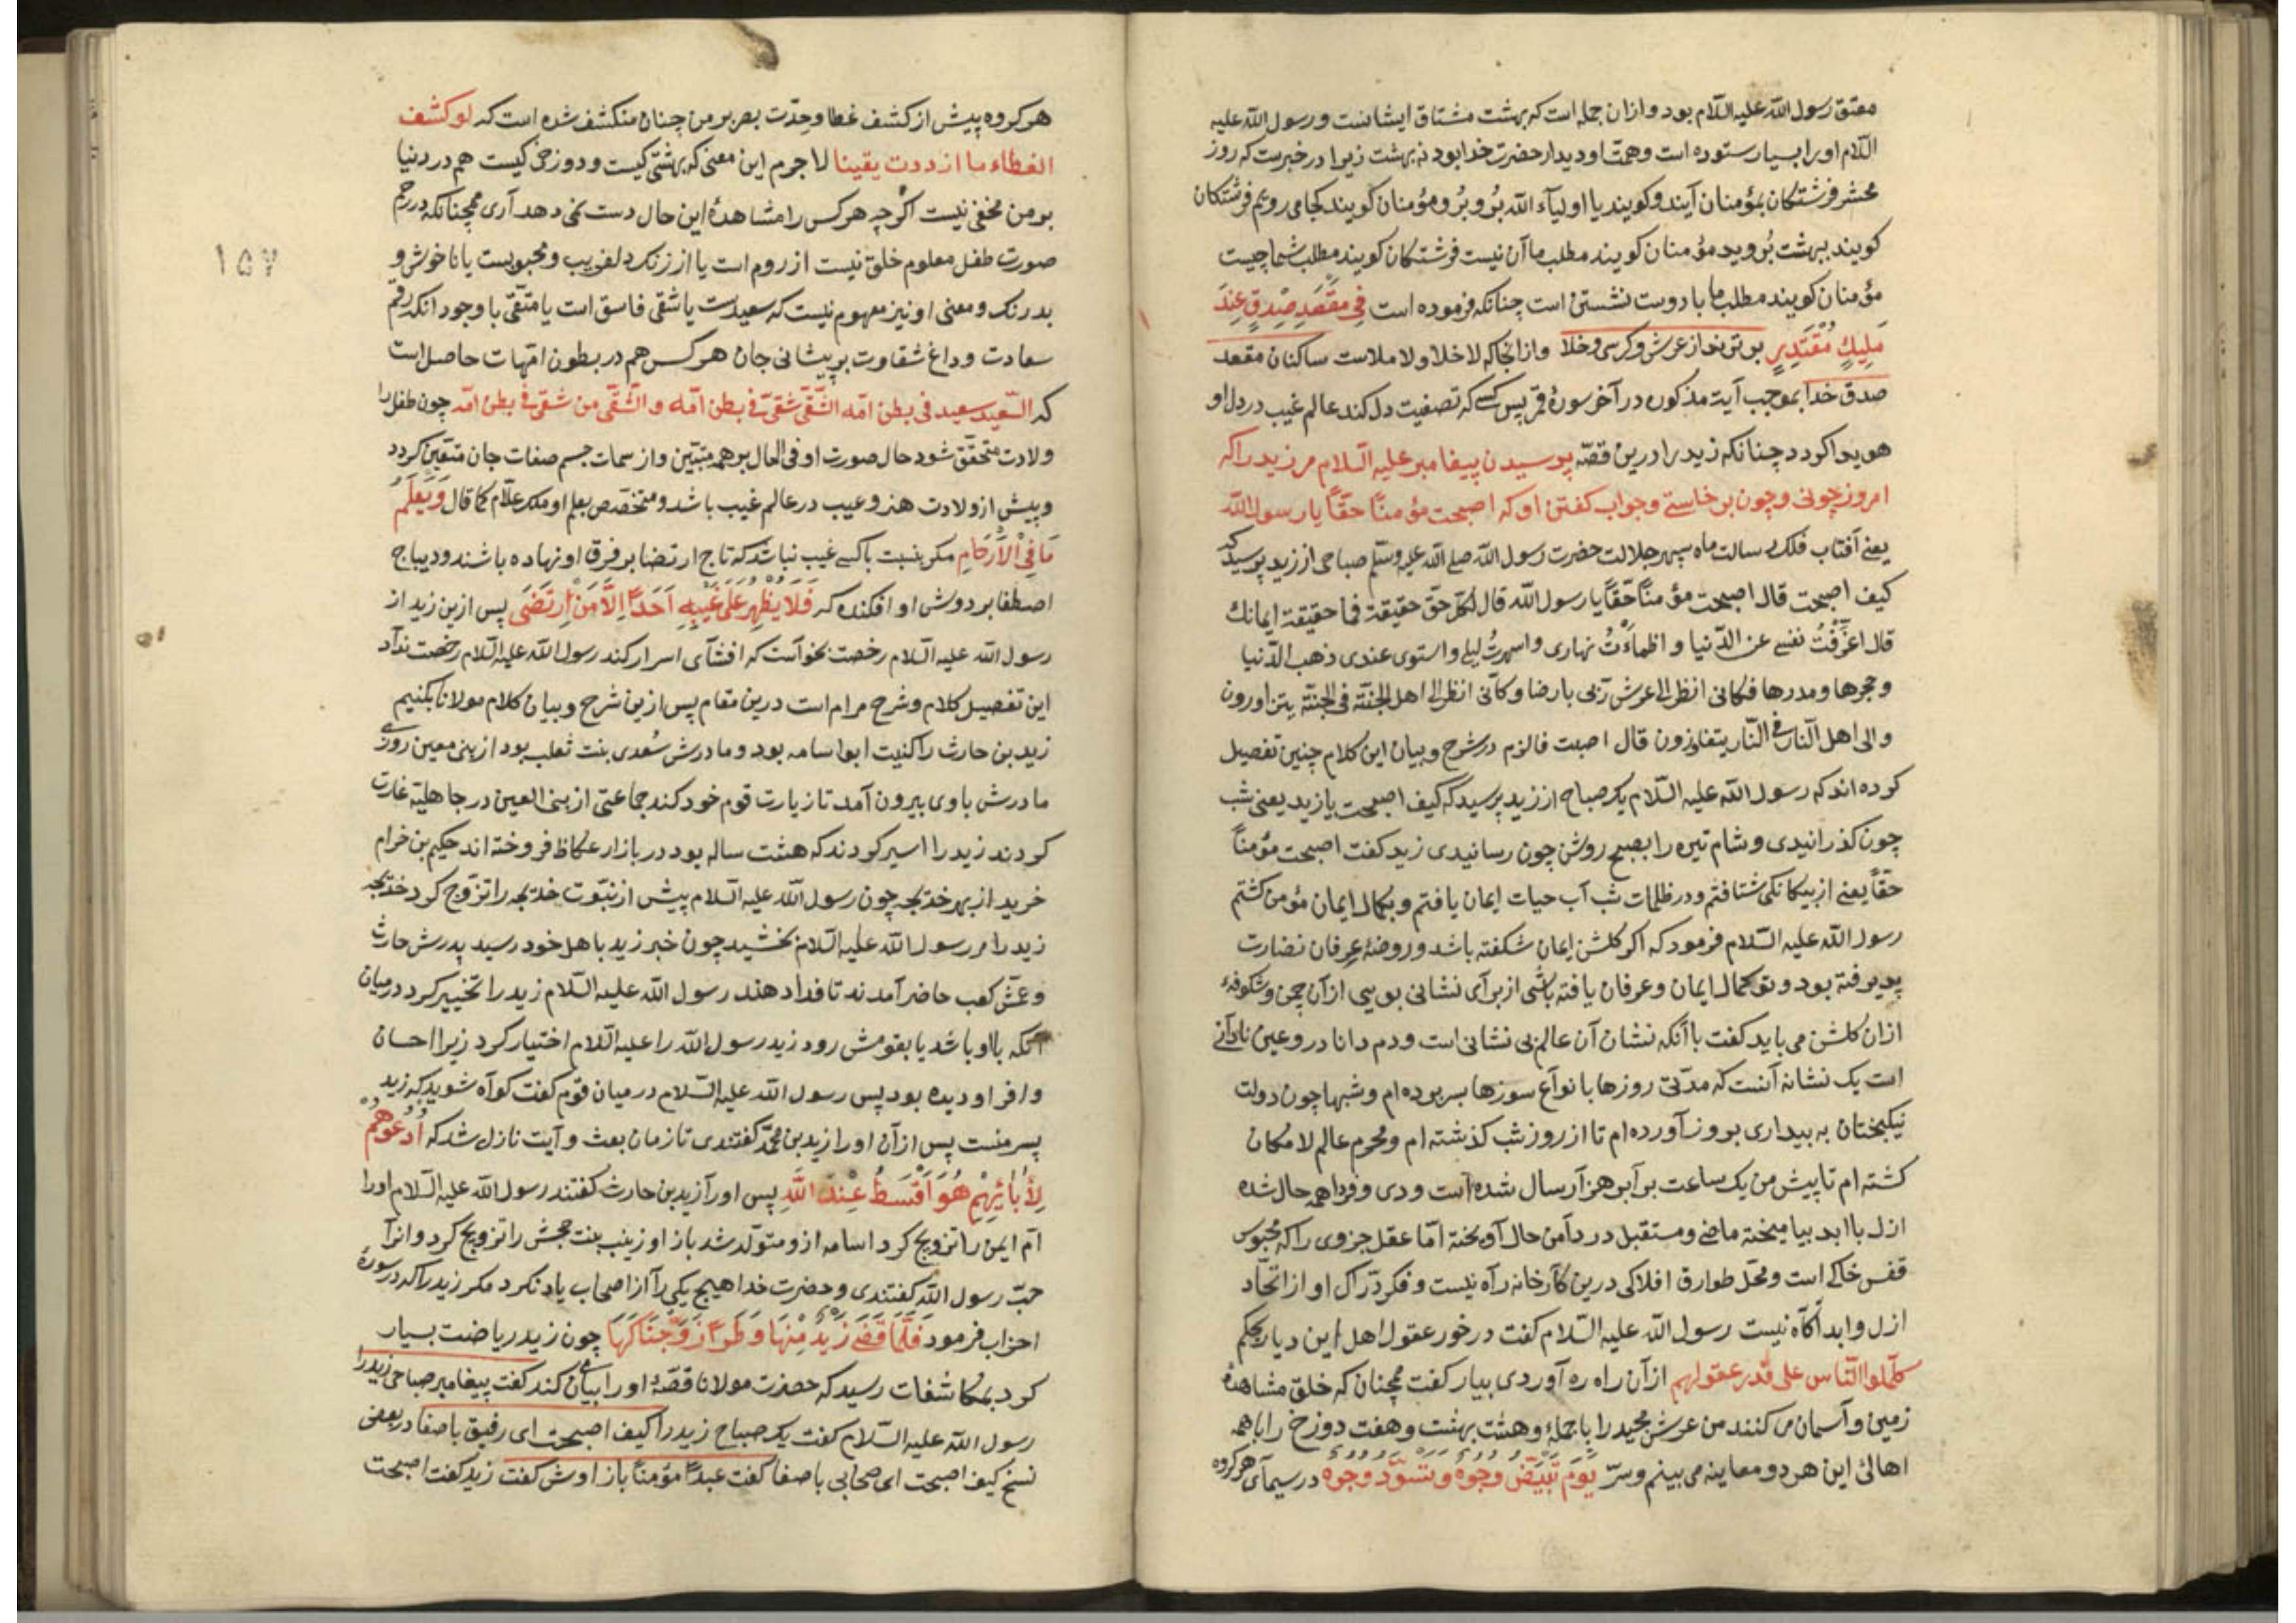 معتق رسول الله علیه السلام بود و ازان جمله است که بهشت مشتاق ایشانست و رسول الله علیه
السلام او را بسیار ستوده است و همت او دیدار حضرت خدا بود نه بهشت زیرا در خبرست که روز
محشر فرشتکان بمؤمنان آیند و کویند یا اولیآء الله برو برو مؤمنان کویند کجا می رویم فرشتکان
کویند ببهشت بروید مؤمنان کویند مطلب ما آن نیست فرشتکان کویند مطلب شما چیست
مؤمنان کویند مطلب ما با دوست نشستن است چنانکه فرموده است فِی مَقْعَدِ صِدْقٍ عِنْدَ
مَلِیكٍ مُقْتَدِرٍ برتر نه از عرش و کرسی و خلا وازانجا که لا خلا و لا ملاست ساکنان مقعد
صدق خدا بموجب آیت مذکوره در آخر سورهٔ قمر پس کسی که تصفیت دل کند عالم غیب در دل او
هویدا کردد چنانکه زید را درین قصه پرسیدن پیغامبر علیه السلام مر زید را که
امروز چونی و چون برخاستی و جواب کفتن او که اصبحت مؤمنًا حقًّا یا رسول الله
یعنی آفتاب فلك رسالت ماه سپهر جلالت حضرت رسول الله صلی الله علیه وسلم صباحی از زید پرسید که
کیف اصبحت قال اصبحت مؤمنًا حقًّا یا رسول الله قال لکل حق حقیقة فما حقیقة ایمانك
قال اعزفت نفسی عن الدنیا و اظمأت نهاری و اسهرت لیلی و استوی عندی ذهب الدنیا
و حجرها و مدرها فکانی انظر الی عرش ربی بارضا و کانی انظر الی اهل الجنة فی الجنة یتزاورون
و الی اهل النار فی النار یتغاوزون قال اصبت فالزم در شرح و بیان این کلام چنین تفصیل
کرده اند که رسول الله علیه السلام یک صباح از زید پرسید که کیف اصبحت یا زید یعنی شب
چون کذرانیدی و شام تیره را بصبح روشن چون رسانیدی زید کفت اصبحت مؤمنًا
حقًّا یعنی از بیکانکی شتافتم و در ظلمات شب آب حیات ایمان یافتم و بکمال ایمان مؤمن کشتم
رسول الله علیه السلام فرمود که اکر کلشن ایمان شکفته باشد و روضهٔ عرفان نضارت
پذیرفته بود و تو کمال ایمان و عرفان یافته باشی از برآی نشانی بویی ازآن چمن و شکوفهٔ
ازان کلشن می باید کفت با آنکه نشان آن عالم بی نشانی است و دم دانا درو عین نادانی
است یک نشانه آنست که مدتی روزها با نوآع سوزها بسر بوده ام و شبها چون دولت
نیکبختان به بیداری بروز آورده ام تا از روز شب کذشته ام و محرم عالم لا مکان
کشته ام تا پیش من یک ساعت برآبر هزآر سال شده است و دی و فردا همه حال شده
ازل با ابد بیامیخته ماضی و مستقبل در دآمن حال آویخته امّا عقل جزوی را که محبوس
قفس خاکی است و محل طوارق افلاکی درین کآرخانه رآه نیست و فکر درّاك او از اتحاد
ازل و ابد آکاه نیست رسول الله علیه السلام کفت در خور عقول اهل این دیار بحکم
کلموا الناس علی قدر عقولهم ازآن راه ره آوردی بیار کفت همچنان که خلق مشاهدهٔ
زمین و آسمان می کنند من عرش مجید را با جملهٔ و هشت بهشت و هفت دوزخ را با همه
اهالیٔ این هر دو معاینه می بینم و سرّ یَوْمَ تَبْیَضُّ وُجُوهٌ وَ تَسْوَدُّ وُجُوهٌ در سیمآی هر کروه
هر کروه پیش از کشف غطا و حدّت بصر بر من چنان منکشف شده است که لو کشف
الغطاء ما ازددت یقینا لا جرم این معنی که بهشتی کیست و دوزخی کیست هم در دنیا
بر من مخفی نیست اکرچه هر کس را مشاهدهٔ این حال دست نمی دهد آری همچنانکه در رحم
صورت طفل معلوم خلق نیست از روم است یا از زنك دلفریب و محبوبست یا ناخوش و
بدرنك و معنی او نیز مفهوم نیست که سعیدست یا شقی فاسق است یا متقی با وجود انکه رقم
سعادت و داغ شقاوت بر پیشانی جان هر کس هم در بطون امهات حاصل است
که السعید سعید فی بطن امه الشقی شقی فی بطن امه و الشقی من شقی فی بطن امه چون طفل را
ولادت متحقق شود حال صورت او فی الحال بر همه متبین و از سمات جسم صفات جان متیقن کردد
و پیش از ولادت هنر و عیب در عالم غیب باشد و متخصص بعلم او ملك علّام کما قال وَ یَعْلَمُ
مَا فِی الْأَرْحَامِ مکر بنسبت با کسی غیب نباشد که تاج ارتضا بر فرق او نهاده باشند و دیباج
اصطفا بر دوش او افکنده که فَلَا یُظْهِرُ عَلَی غَیْبِهِ أَحَدًا إِلَّا مَنِ ارْتَضَی پس ازین زید از
رسول الله علیه السلام رخصت بخوآست که افشآی اسرار کند رسول الله علیه السلام رخصت ندآد
این تفصیل کلام و شرح مرام است درین مقام پس ازین شرح و بیان کلام مولانا بکنیم
زید بن حارث را کنیت ابو اسامه بود و مادرش سُعدی بنت ثعلب بود از بنی معین روزی
مادرش با وی بیرون آمد تا زیارت قوم خود کند جماعتی از بنی العین در جاهلیة غارت
کردند زید را اسیر کردند که هشت ساله بود در بازار عکاظ فروخته اند حکیم بن خرام
خرید از بهر خدیجه چون رسول الله علیه السلام پیش از نبوت خدیجه را تزوّج کرد خدیجه
زید را مر رسول الله علیه السلام بخشید چون خبر زید باهل خود رسید پدرش حارث
و عمّش کعب حاضر آمدند تا فدا دهند رسول الله علیه السلام زید را تخییر کرد در میان
آنکه با او باشد یا بقومش رود زید رسول الله را علیه السلام اختیار کرد زیرا احسان
وافر او دیده بود پس رسول الله علیه السلام در میان قوم کفت کوآه شوید که زید
پسر منست پس ازآن او را زید بن محمد کفتندی تا زمان بعث و آیت نازل شد که اُدْعُوهُمْ
لِأٰبَائِهِمْ هُوَ أَقْسَطُ عِنْدَ اللّهِ پس اورآ زید بن حارث کفتند رسول الله علیه السلام او را
امّ ایمن را تزویج کرد اسامه ازو متولد شد باز او زینب بنت جحش را تزویج کرد و انرآ
حبّ رسول الله کفتندی و حضرت خدا هیچ یکی رآ از اصحاب یاد نکرد مکر زید را که در سورهٔ
احزاب فرمود فَلَمَّا قَضَی زَیْدٌ مِنْهَا وَطَرًا زَوَّجْنَاکَهَا چون زید ریاضت بسیار
کرد بمکاشفات رسید که حضرت مولانا قصّهٔ او را بیان می کند کفت پیغامبر صباحی زید را
رسول الله علیه السلام کفت یک صباح زید را کیف اصبحت ای رفیق با صفا در بعضی
نسخ کیف اصبحت ای صحابی با صفا کفت عبدًا مؤمنًا باز اوش کفت زید کفت اصبحت
١٥٧